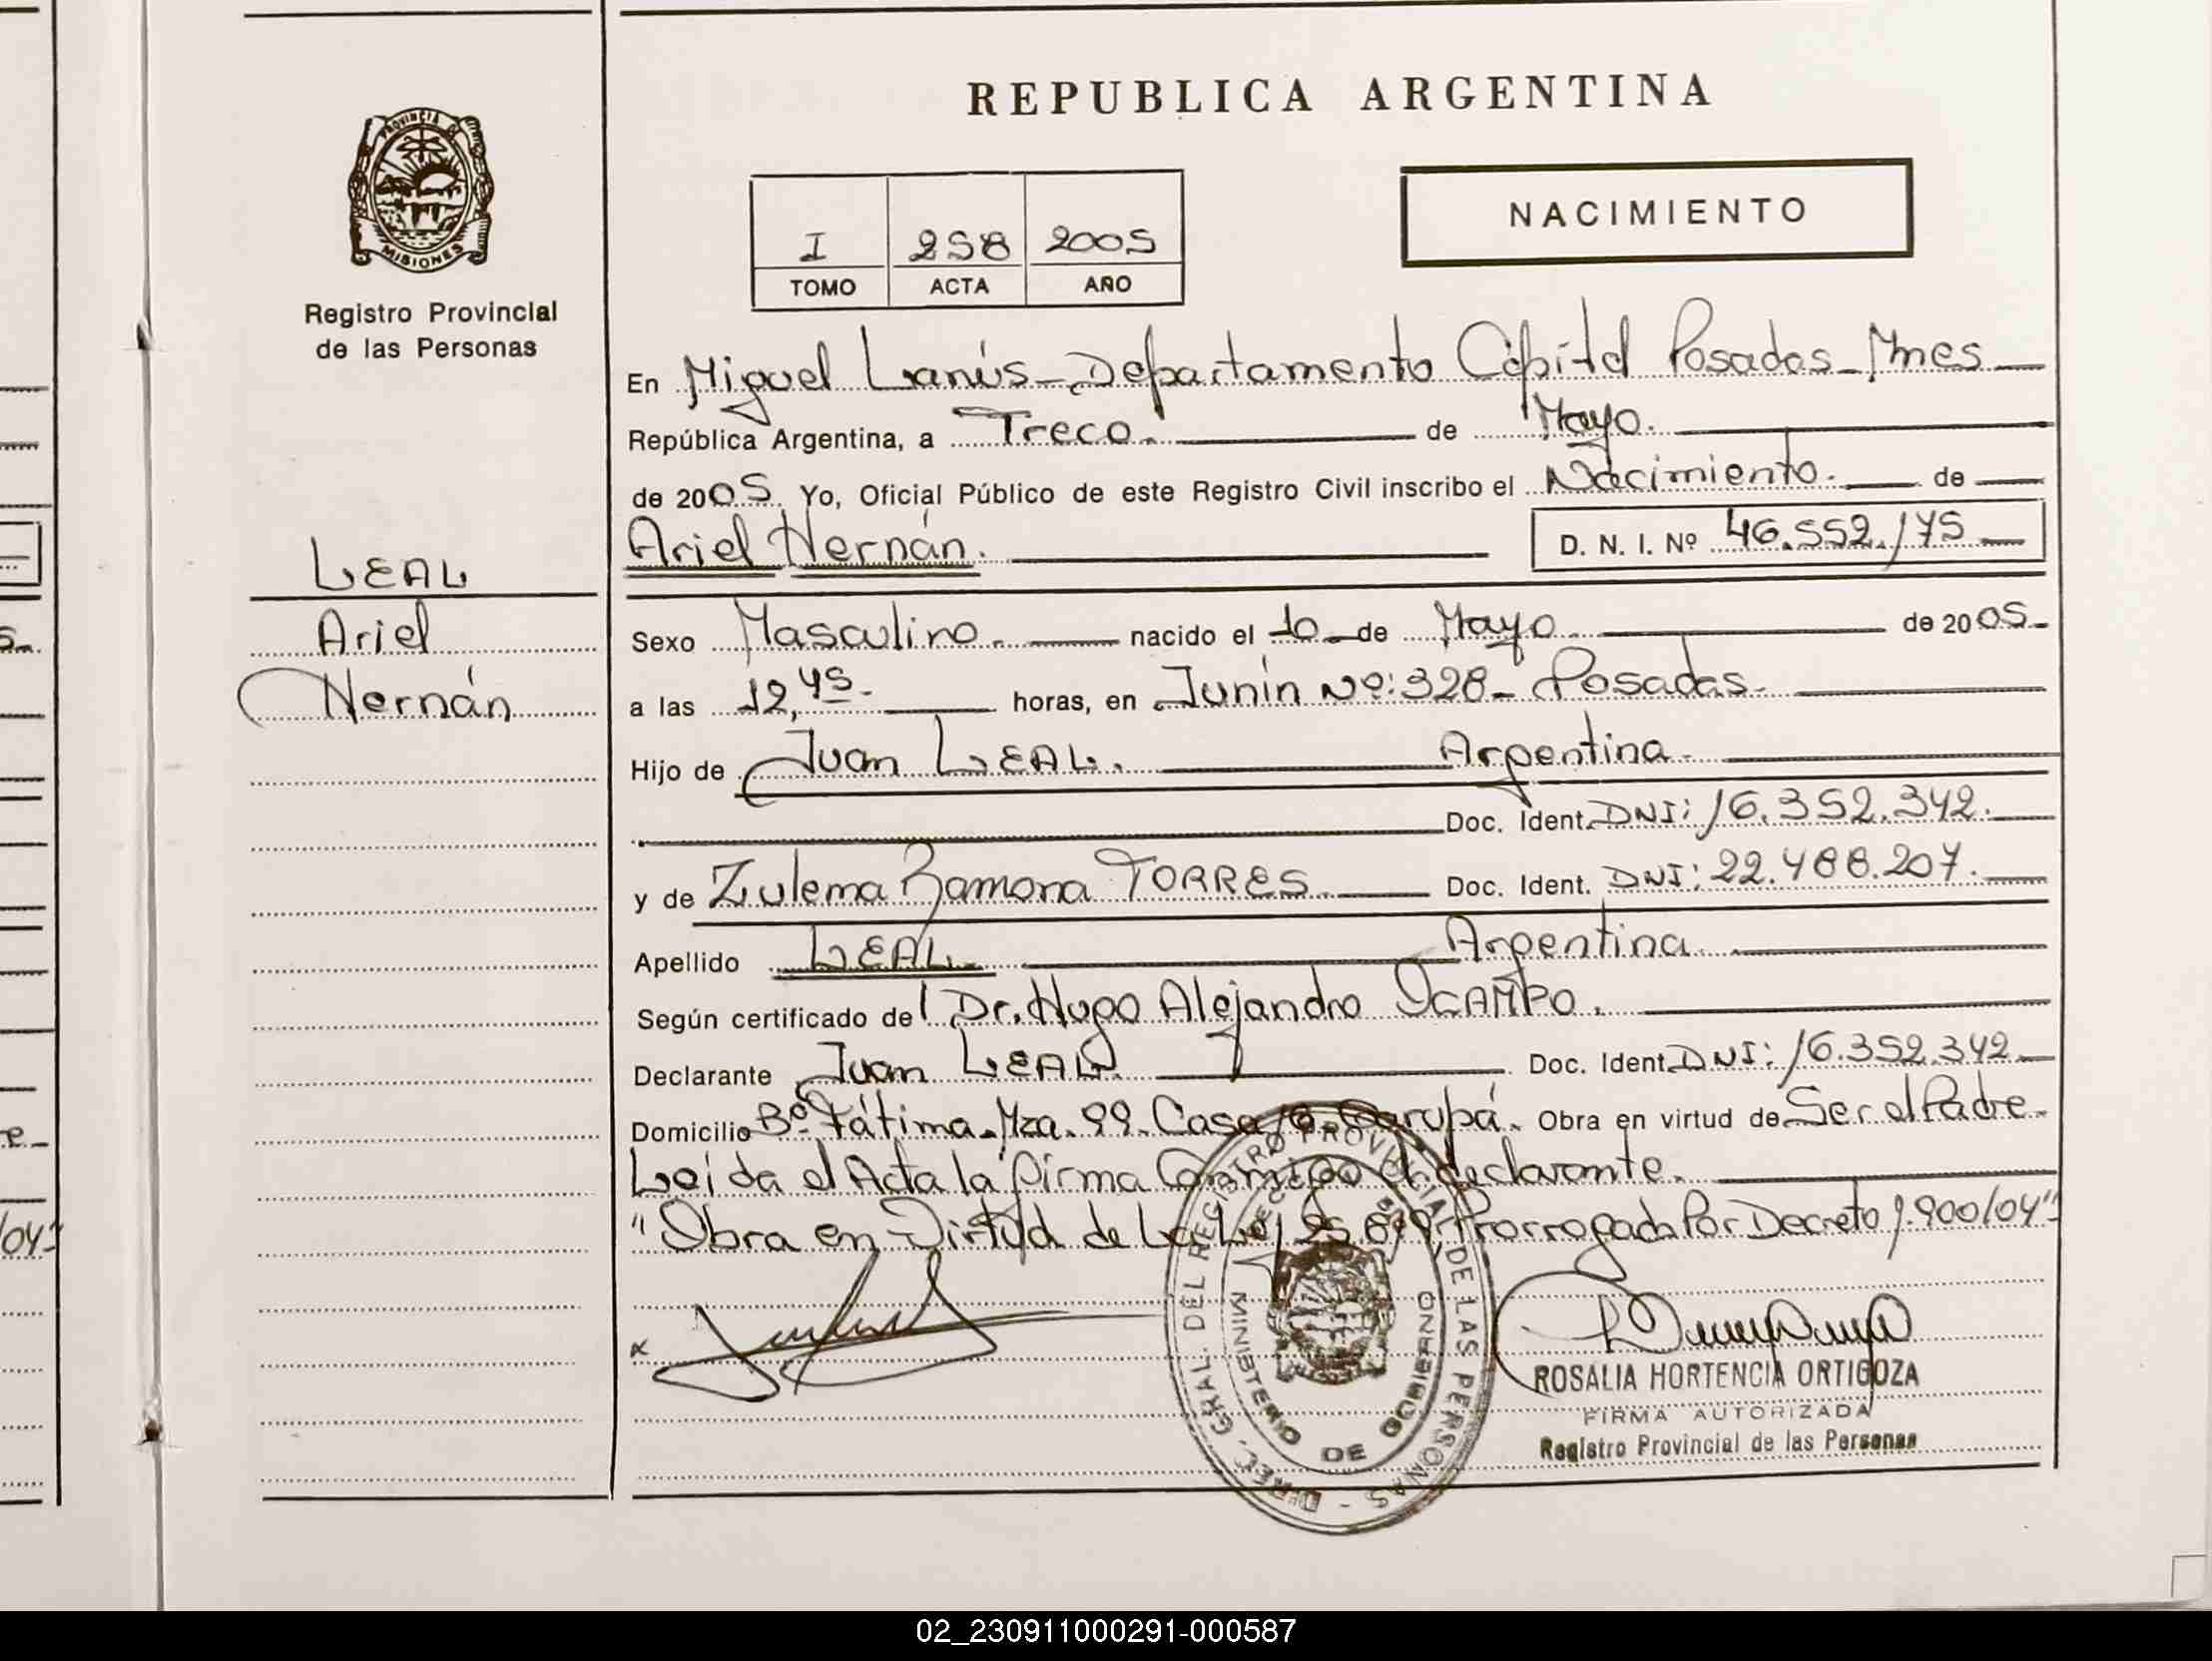 REPUBLICA ARGENTINA
PROVINCIA DE
MISIONES
Registro Provincial
de las Personas
NACIMIENTO
I 258 2005
TOMO ACTA AÑO
LEAL
Ariel
Hernán
En Miguel Lanús - Departamento Capital Posadas - Mnes
República Argentina, a Trece. de Mayo.
de 2005. Yo, Oficial Público de este Registro Civil inscribo el Nacimiento. de
Ariel Hernán. D. N. I. Nº 46.552.175
Sexo Masculino. nacido el 10 de Mayo de 2005.
a las 12,45. horas, en Junín Nº: 328 - Posadas.
Hijo de Juan LEAL. Argentina.
Doc. Ident. DNI: 16.352.342.
y de Zulema Ramona TORRES. Doc. Ident. DNI: 22.488.207.
Apellido LEAL. Argentina.
Según certificado del Dr. Hugo Alejandro OCAMPO.
Declarante Juan LEAL. Doc. Ident. DNI: 16.352.342
Domicilio Bº Fátima. Mza. 99. Casa Garupá. Obra en virtud de Ser el Padre.
Leída el Acta la firma Conmigo el declarante.
"Obra en Virtud de La Ley 25.819. Prorrogada Por Decreto 1.900/04"
DIREC. GRAL. DEL REGISTRO PROVINCIAL DE LAS PERSONAS -
MINISTERIO DE GOBIERNO
ROSALIA HORTENCIA ORTIGOZA
FIRMA AUTORIZADA
Registro Provincial de las Personas
/04"
02_230911000291-000587